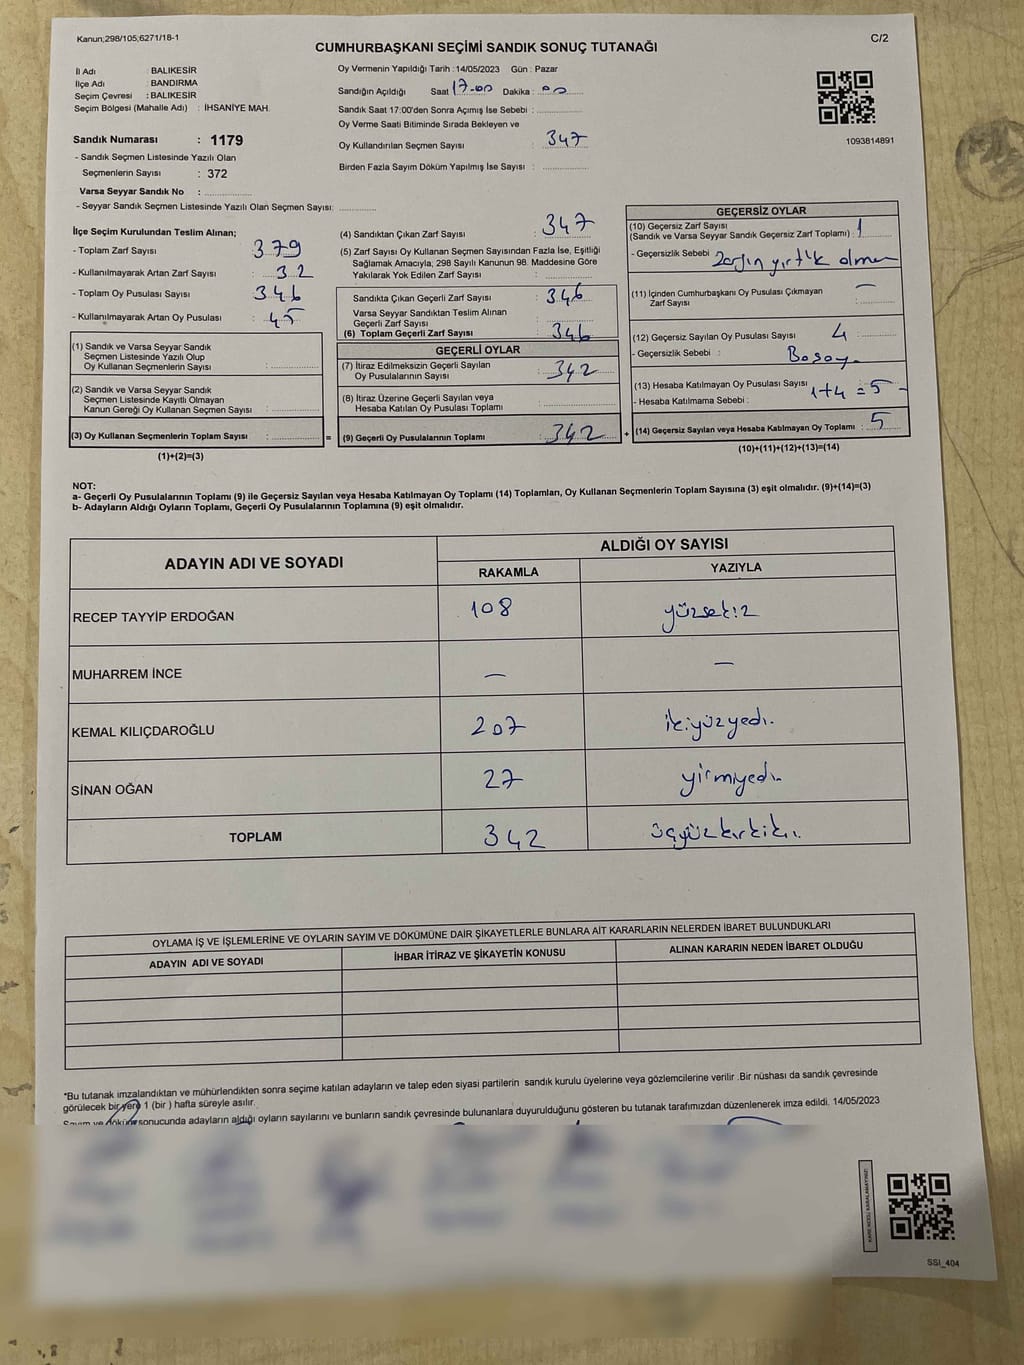 Kanun;298/105;6271/18-1
C/2
CUMHURBAŞKANI SEÇİMİ SANDIK SONUÇ TUTANAĞI
İl Adı : BALIKESİR
İlçe Adı : BANDIRMA
Seçim Çevresi : BALIKESİR
Seçim Bölgesi (Mahalle Adı) : İHSANİYE MAH.
Sandık Numarası : 1179
- Sandık Seçmen Listesinde Yazılı Olan
Seçmenlerin Sayısı : 372
Varsa Seyyar Sandık No :
- Seyyar Sandık Seçmen Listesinde Yazılı Olan Seçmen Sayısı:
Oy Vermenin Yapıldığı Tarih :14/05/2023 Gün : Pazar
Sandığın Açıldığı Saat 17.00 Dakika : 00
Sandık Saat 17:00'den Sonra Açımış İse Sebebi :
Oy Verme Saati Bitiminde Sırada Bekleyen ve
Oy Kullandırılan Seçmen Sayısı : 347
Birden Fazla Sayım Döküm Yapılmış İse Sayısı :
1093814891
İlçe Seçim Kurulundan Teslim Alınan;
- Toplam Zarf Sayısı : 379
- Kullanılmayarak Artan Zarf Sayısı : 32
- Toplam Oy Pusulası Sayısı : 346
- Kullanılmayarak Artan Oy Pusulası : 45
(1) Sandık ve Varsa Seyyar Sandık
Seçmen Listesinde Yazılı Olup
Oy Kullanan Seçmenlerin Sayısı :
(2) Sandık ve Varsa Seyyar Sandık
Seçmen Listesinde Kayıtlı Olmayan
Kanun Gereği Oy Kullanan Seçmen Sayısı :
(3) Oy Kullanan Seçmenlerin Toplam Sayısı : =
(1)+(2)=(3)
(4) Sandıktan Çıkan Zarf Sayısı : 347
(5) Zarf Sayısı Oy Kullanan Seçmen Sayısından Fazla İse, Eşitliği
Sağlamak Amacıyla, 298 Sayılı Kanunun 98. Maddesine Göre
Yakılarak Yok Edilen Zarf Sayısı :
Sandıkta Çıkan Geçerli Zarf Sayısı : 346
Varsa Seyyar Sandıktan Teslim Alınan
Geçerli Zarf Sayısı :
(6) Toplam Geçerli Zarf Sayısı : 346
GEÇERLİ OYLAR
(7) İtiraz Edilmeksizin Geçerli Sayılan
Oy Pusulalarının Sayısı : 342
(8) İtiraz Üzerine Geçerli Sayılan veya
Hesaba Katılan Oy Pusulası Toplamı :
(9) Geçerli Oy Pusulalarının Toplamı : 342 +
GEÇERSİZ OYLAR
(10) Geçersiz Zarf Sayısı
(Sandık ve Varsa Seyyar Sandık Geçersiz Zarf Toplamı) : 1
- Geçersizlik Sebebi : Zarfın yırtık olması
(11) İçinden Cumhurbaşkanı Oy Pusulası Çıkmayan
Zarf Sayısı : —
(12) Geçersiz Sayılan Oy Pusulası Sayısı : 4
- Geçersizlik Sebebi :
(13) Hesaba Katılmayan Oy Pusulası Sayısı : 1+4=5
- Hesaba Katılmama Sebebi :
(14) Geçersiz Sayılan veya Hesaba Katılmayan Oy Toplamı : 5
(10)+(11)+(12)+(13)=(14)
NOT:
a- Geçerli Oy Pusulalarının Toplamı (9) ile Geçersiz Sayılan veya Hesaba Katılmayan Oy Toplamı (14) Toplamları, Oy Kullanan Seçmenlerin Toplam Sayısına (3) eşit olmalıdır. (9)+(14)=(3)
b- Adayların Aldığı Oyların Toplamı, Geçerli Oy Pusulalarının Toplamına (9) eşit olmalıdır.
ADAYIN ADI VE SOYADI
ALDIĞI OY SAYISI
RAKAMLA YAZIYLA
RECEP TAYYİP ERDOĞAN 108 yüzsekiz
MUHARREM İNCE — —
KEMAL KILIÇDAROĞLU 207 ikiyüzyedi.
SİNAN OĞAN 27 yirmiyedi.
TOPLAM 342 üçyüzkırkiki.
OYLAMA İŞ VE İŞLEMLERİNE VE OYLARIN SAYIM VE DÖKÜMÜNE DAİR ŞİKAYETLERLE BUNLARA AİT KARARLARIN NELERDEN İBARET BULUNDUKLARI
ADAYIN ADI VE SOYADI İHBAR İTİRAZ VE ŞİKAYETİN KONUSU ALINAN KARARIN NEDEN İBARET OLDUĞU
*Bu tutanak imzalandıktan ve mühürlendikten sonra seçime katılan adayların ve talep eden siyasi partilerin sandık kurulu üyelerine veya gözlemcilerine verilir .Bir nüshası da sandık çevresinde
görülecek bir yere 1 (bir ) hafta süreyle asılır.
Sayım ve döküm sonucunda adayların aldığı oyların sayılarını ve bunların sandık çevresinde bulunanlara duyurulduğunu gösteren bu tutanak tarafımızdan düzenlenerek imza edildi. 14/05/2023
SSİ_404